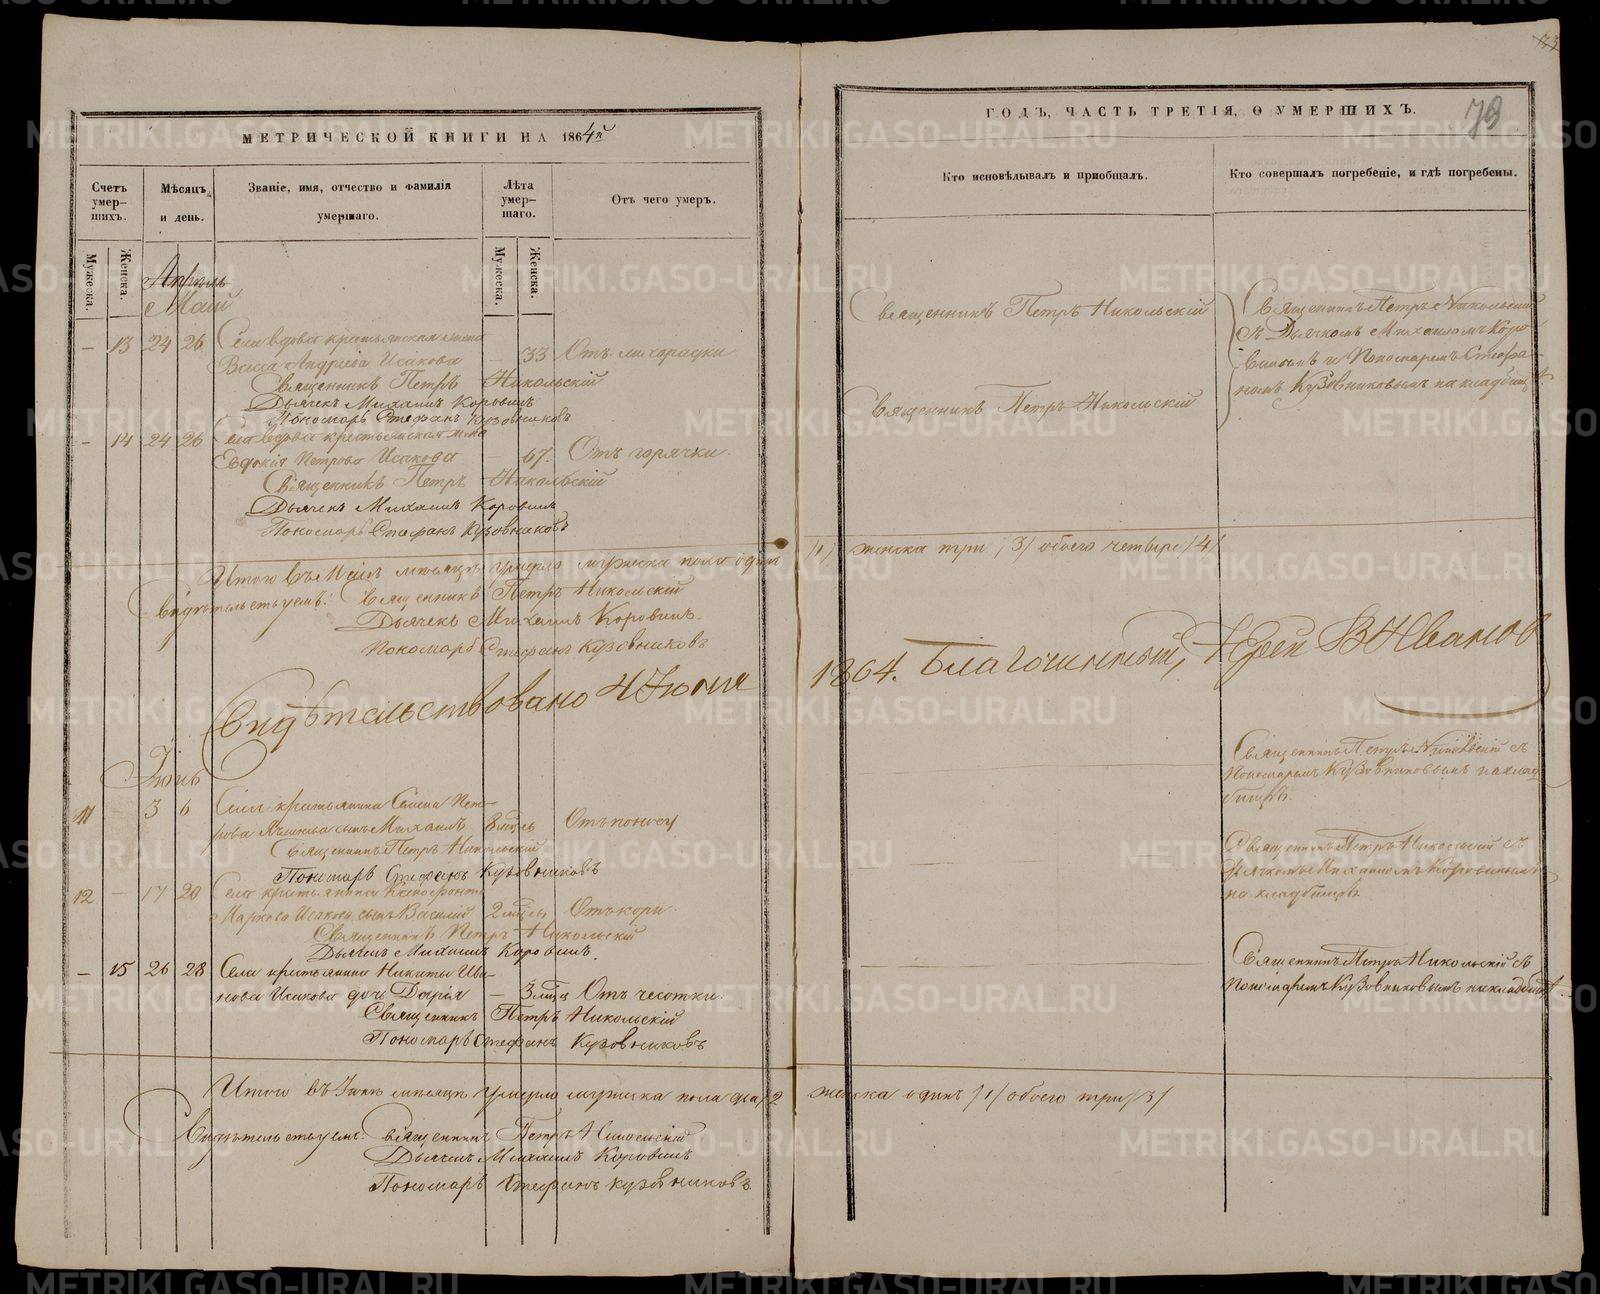 МЕТРИЧЕСКОЙ КНИГИ НА 1864й
ГОДЪ, ЧАСТЬ ТРЕТІЯ, О УМЕРШИХЪ.
79
Счетъ умер-шихъ.
Мѣсяцъ и день.
Званіе, имя, отчество и фамилія умершаго.
Лѣта умер-шаго.
Отъ чего умеръ.
Кто исповѣдывалъ и приобщалъ.
Кто совершалъ погребеніе, и гдѣ погребены.
Мужеска.
Женска.
Мужеска.
Женска.
Апрель
Май
– 13 24 26 Села вдова крестьянская жена
Васса Андреева Исакова – 33 Отъ лихорадки
Священникъ Петръ Никольскій
Дьячекъ Михаилъ Коровинъ
Пономарь Стефанъ Кузовниковъ
Священникъ Петръ Никольскій
Священникъ Петръ Никольскій
съ Дьячкомъ Михаиломъ Коро-
винымъ и Пономаремъ Стефа-
номъ Кузовниковымъ на кладбищѣ
– 14 24 26 Села вдова крестьянская жена
Евдокія Петрова Исакова – 67. Отъ горячки.
Священникъ Петръ Никольскій
Дьячекъ Михаилъ Коровинъ
Пономарь Стефанъ Кузовниковъ
Священникъ Петръ Никольскій
Итого въ Маѣ мѣсяцѣ умерло мужеска пола одинъ /1/ женска три /3/ обоего четыре /4/
Свидѣтельствуемъ: Священникъ Петръ Никольскій
Дьячекъ Михаилъ Коровинъ.
Пономарь Стефанъ Кузовниковъ
Свидѣтельствовано 4 Іюня 1864. Благочинный, Іерей В Ивановъ
Іюнь
11 – 3 6 Села крестьянина Семена Пет-
рова сынъ Михаилъ 8 мцъ Отъ поносу
Священникъ Петръ Никольскій
Пономарь Стефанъ Кузовниковъ
Священникъ Петръ Никольскій съ
Пономаремъ Кузовниковымъ на клад-
бищѣ.
12 – 17 20 Села крестьянина Ксенофонта
Маркова Исакова сынъ Василій 2 мцъ Отъ кори
Священникъ Петръ Никольскій
Дьячекъ Михаилъ Коровинъ.
Священникъ Петръ Никольскій съ
Дьячкомъ Михаиломъ Коровинымъ
на кладбищѣ.
– 15 26 28 Села крестьянина Никиты Ива-
нова Исакова дочь Дарія – 3 мцъ Отъ чесотки.
Священникъ Петръ Никольскій
Пономарь Стефанъ Кузовниковъ
Священникъ Петръ Никольскій съ
Пономаремъ Кузовниковымъ на кладбищѣ.
Итого въ Іюнѣ мѣсяцѣ умерло мужеска пола два /2 женска одинъ /1/ обоего три /3/
Свидѣтельствуемъ: Священникъ Петръ Никольскій
Дьячекъ Михаилъ Коровинъ
Пономарь Стефанъ Кузовниковъ.
METRIKI.GASO-URAL.RU